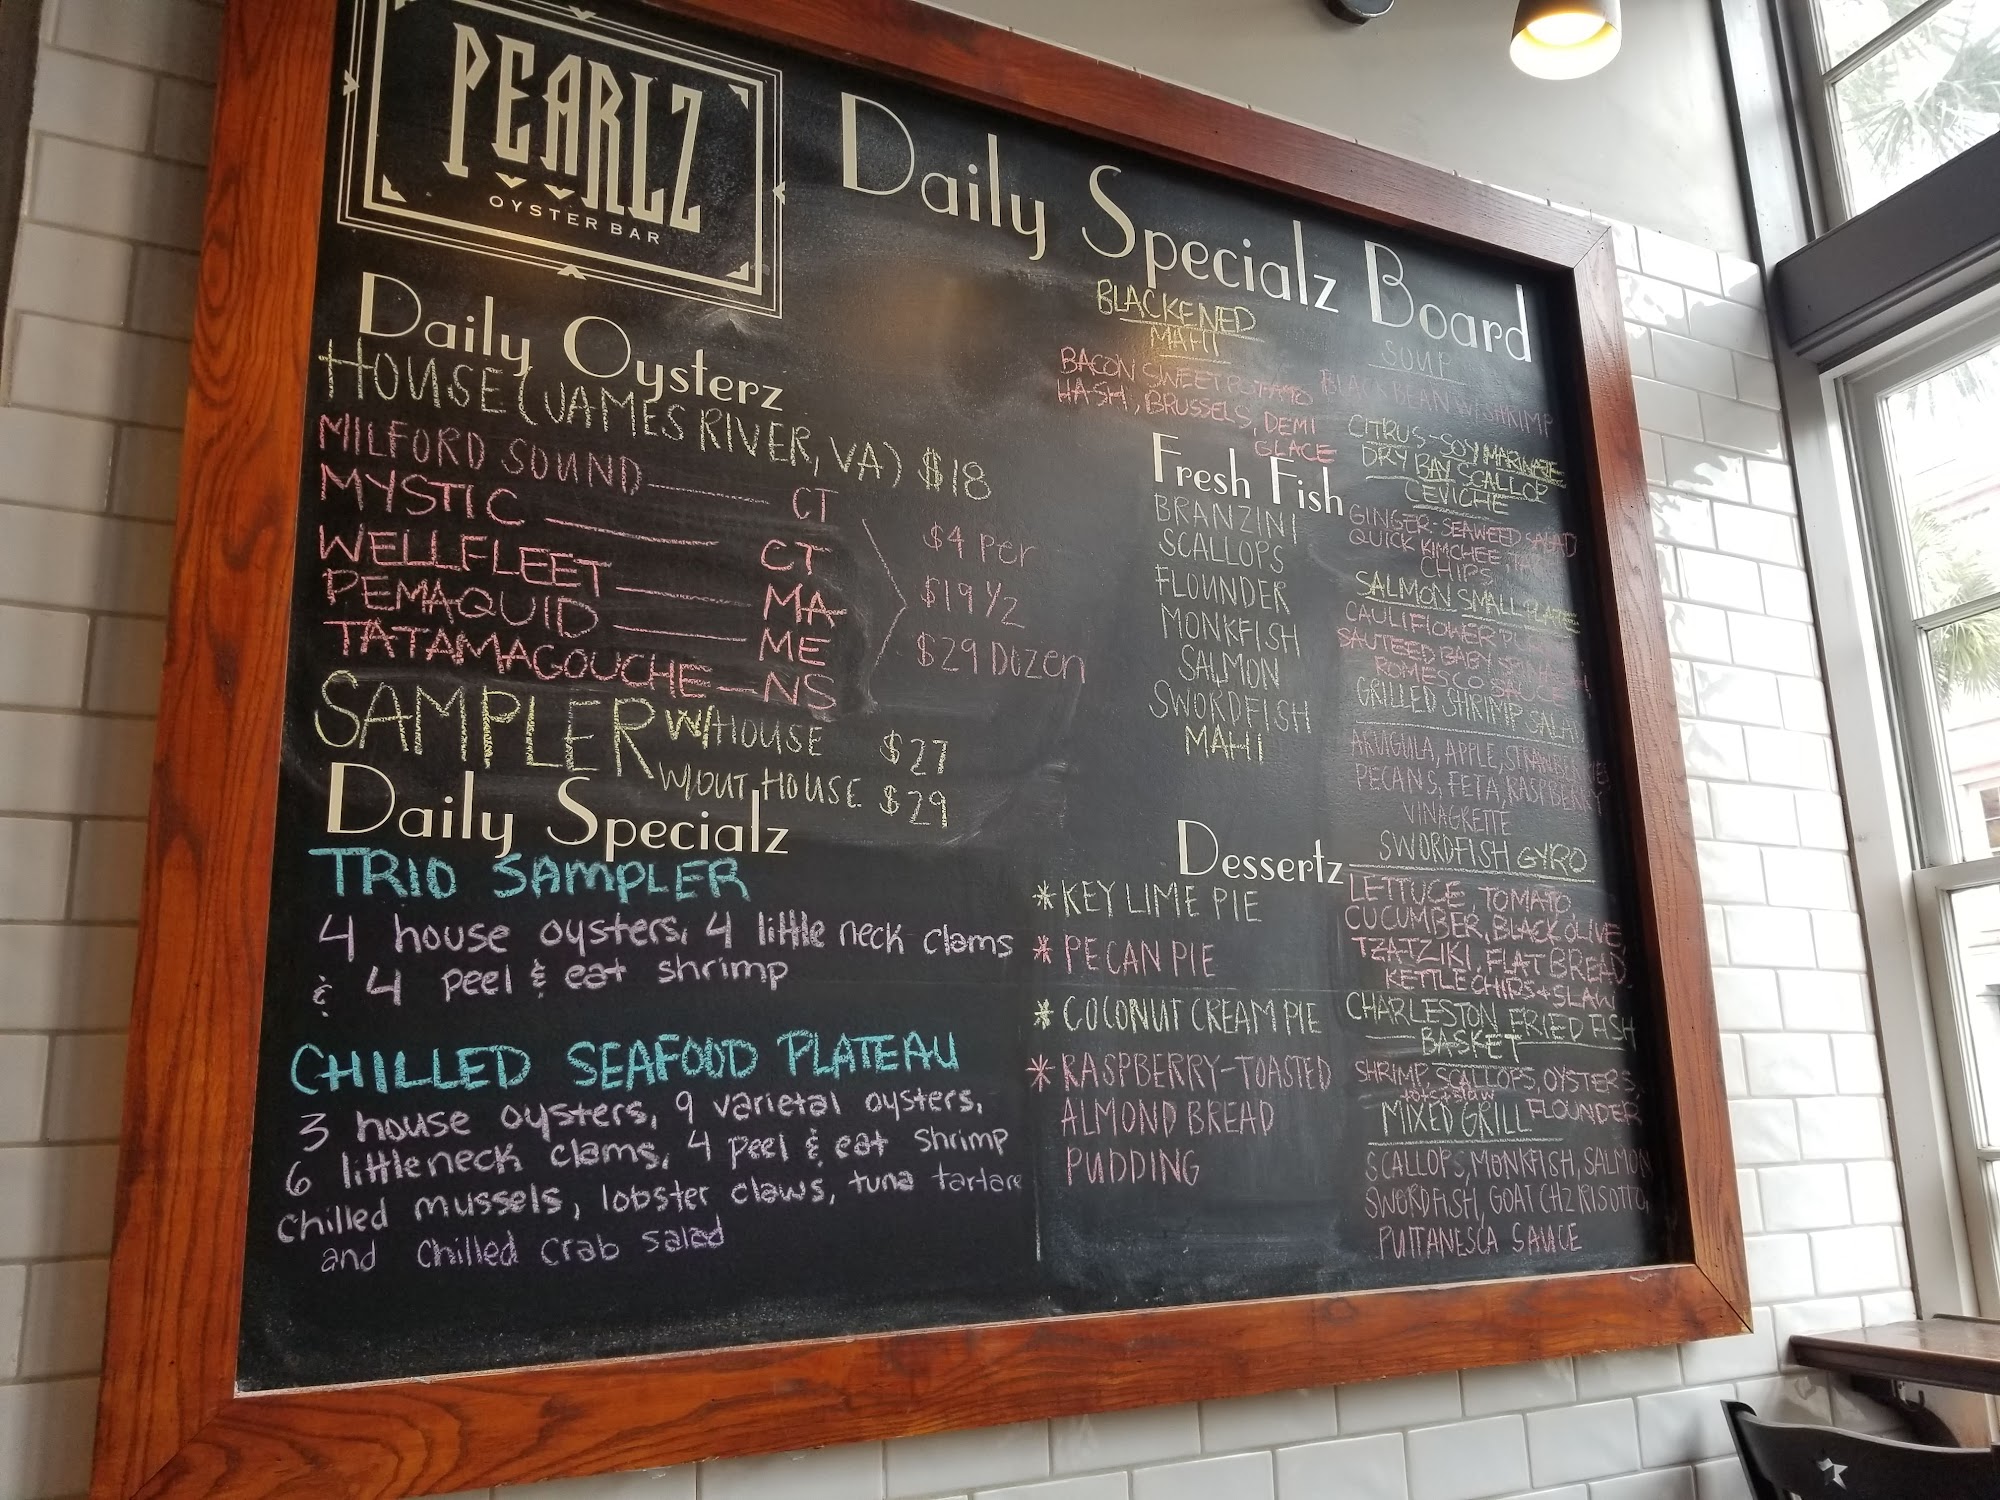 PEARLZ
OYSTER BAR
Daily Specialz Board
Daily Oysterz
HOUSE (JAMES RIVER, VA) $18
MILFORD SOUND — CT
MYSTIC — CT
WELLFLEET — MA
PEMAQUID — ME
TATAMAGOUCHE — NS
$4 per
$19 1/2
$29 Dozen
SAMPLER W/HOUSE $27
W/OUT HOUSE $29
Daily Specialz
TRIO SAMPLER
4 house oysters, 4 little neck clams
& 4 peel & eat shrimp
CHILLED SEAFOOD PLATEAU
3 house oysters, 9 varietal oysters,
6 littleneck clams, 4 peel & eat shrimp
chilled mussels, lobster claws, tuna tartare
and chilled crab salad
BLACKENED
MAHI
BACON SWEET POTATO
HASH, BRUSSELS, DEMI
GLACE
Fresh Fish
BRANZINI
SCALLOPS
FLOUNDER
MONKFISH
SALMON
SWORDFISH
MAHI
Dessertz
* KEY LIME PIE
* PECAN PIE
* COCONUT CREAM PIE
* RASPBERRY-TOASTED
ALMOND BREAD
PUDDING
SOUP
BLACK BEAN W/SHRIMP
CITRUS-SOY MARINATE
DRY BAY SCALLOP
CEVICHE
GINGER-SEAWEED SALAD
QUICK KIMCHEE,
CHIPS
SALMON SMALL PLATE
CAULIFLOWER
SAUTEED BABY SPINACH,
ROMESCO SAUCE
GRILLED SHRIMP SALAD
ARUGULA, APPLE, STRAWBERRIES
PECANS, FETA, RASPBERRY
VINAGRETTE
SWORDFISH GYRO
LETTUCE, TOMATO,
CUCUMBER, BLACK OLIVE,
TZATZIKI, FLAT BREAD,
KETTLE CHIPS + SLAW
CHARLESTON FRIED FISH
BASKET
SHRIMP, SCALLOPS, OYSTERS,
FLOUNDER
tots + slaw
MIXED GRILL
SCALLOPS, MONKFISH, SALMON
SWORDFISH, GOAT CHZ RISOTTO,
PUTTANESCA SAUCE